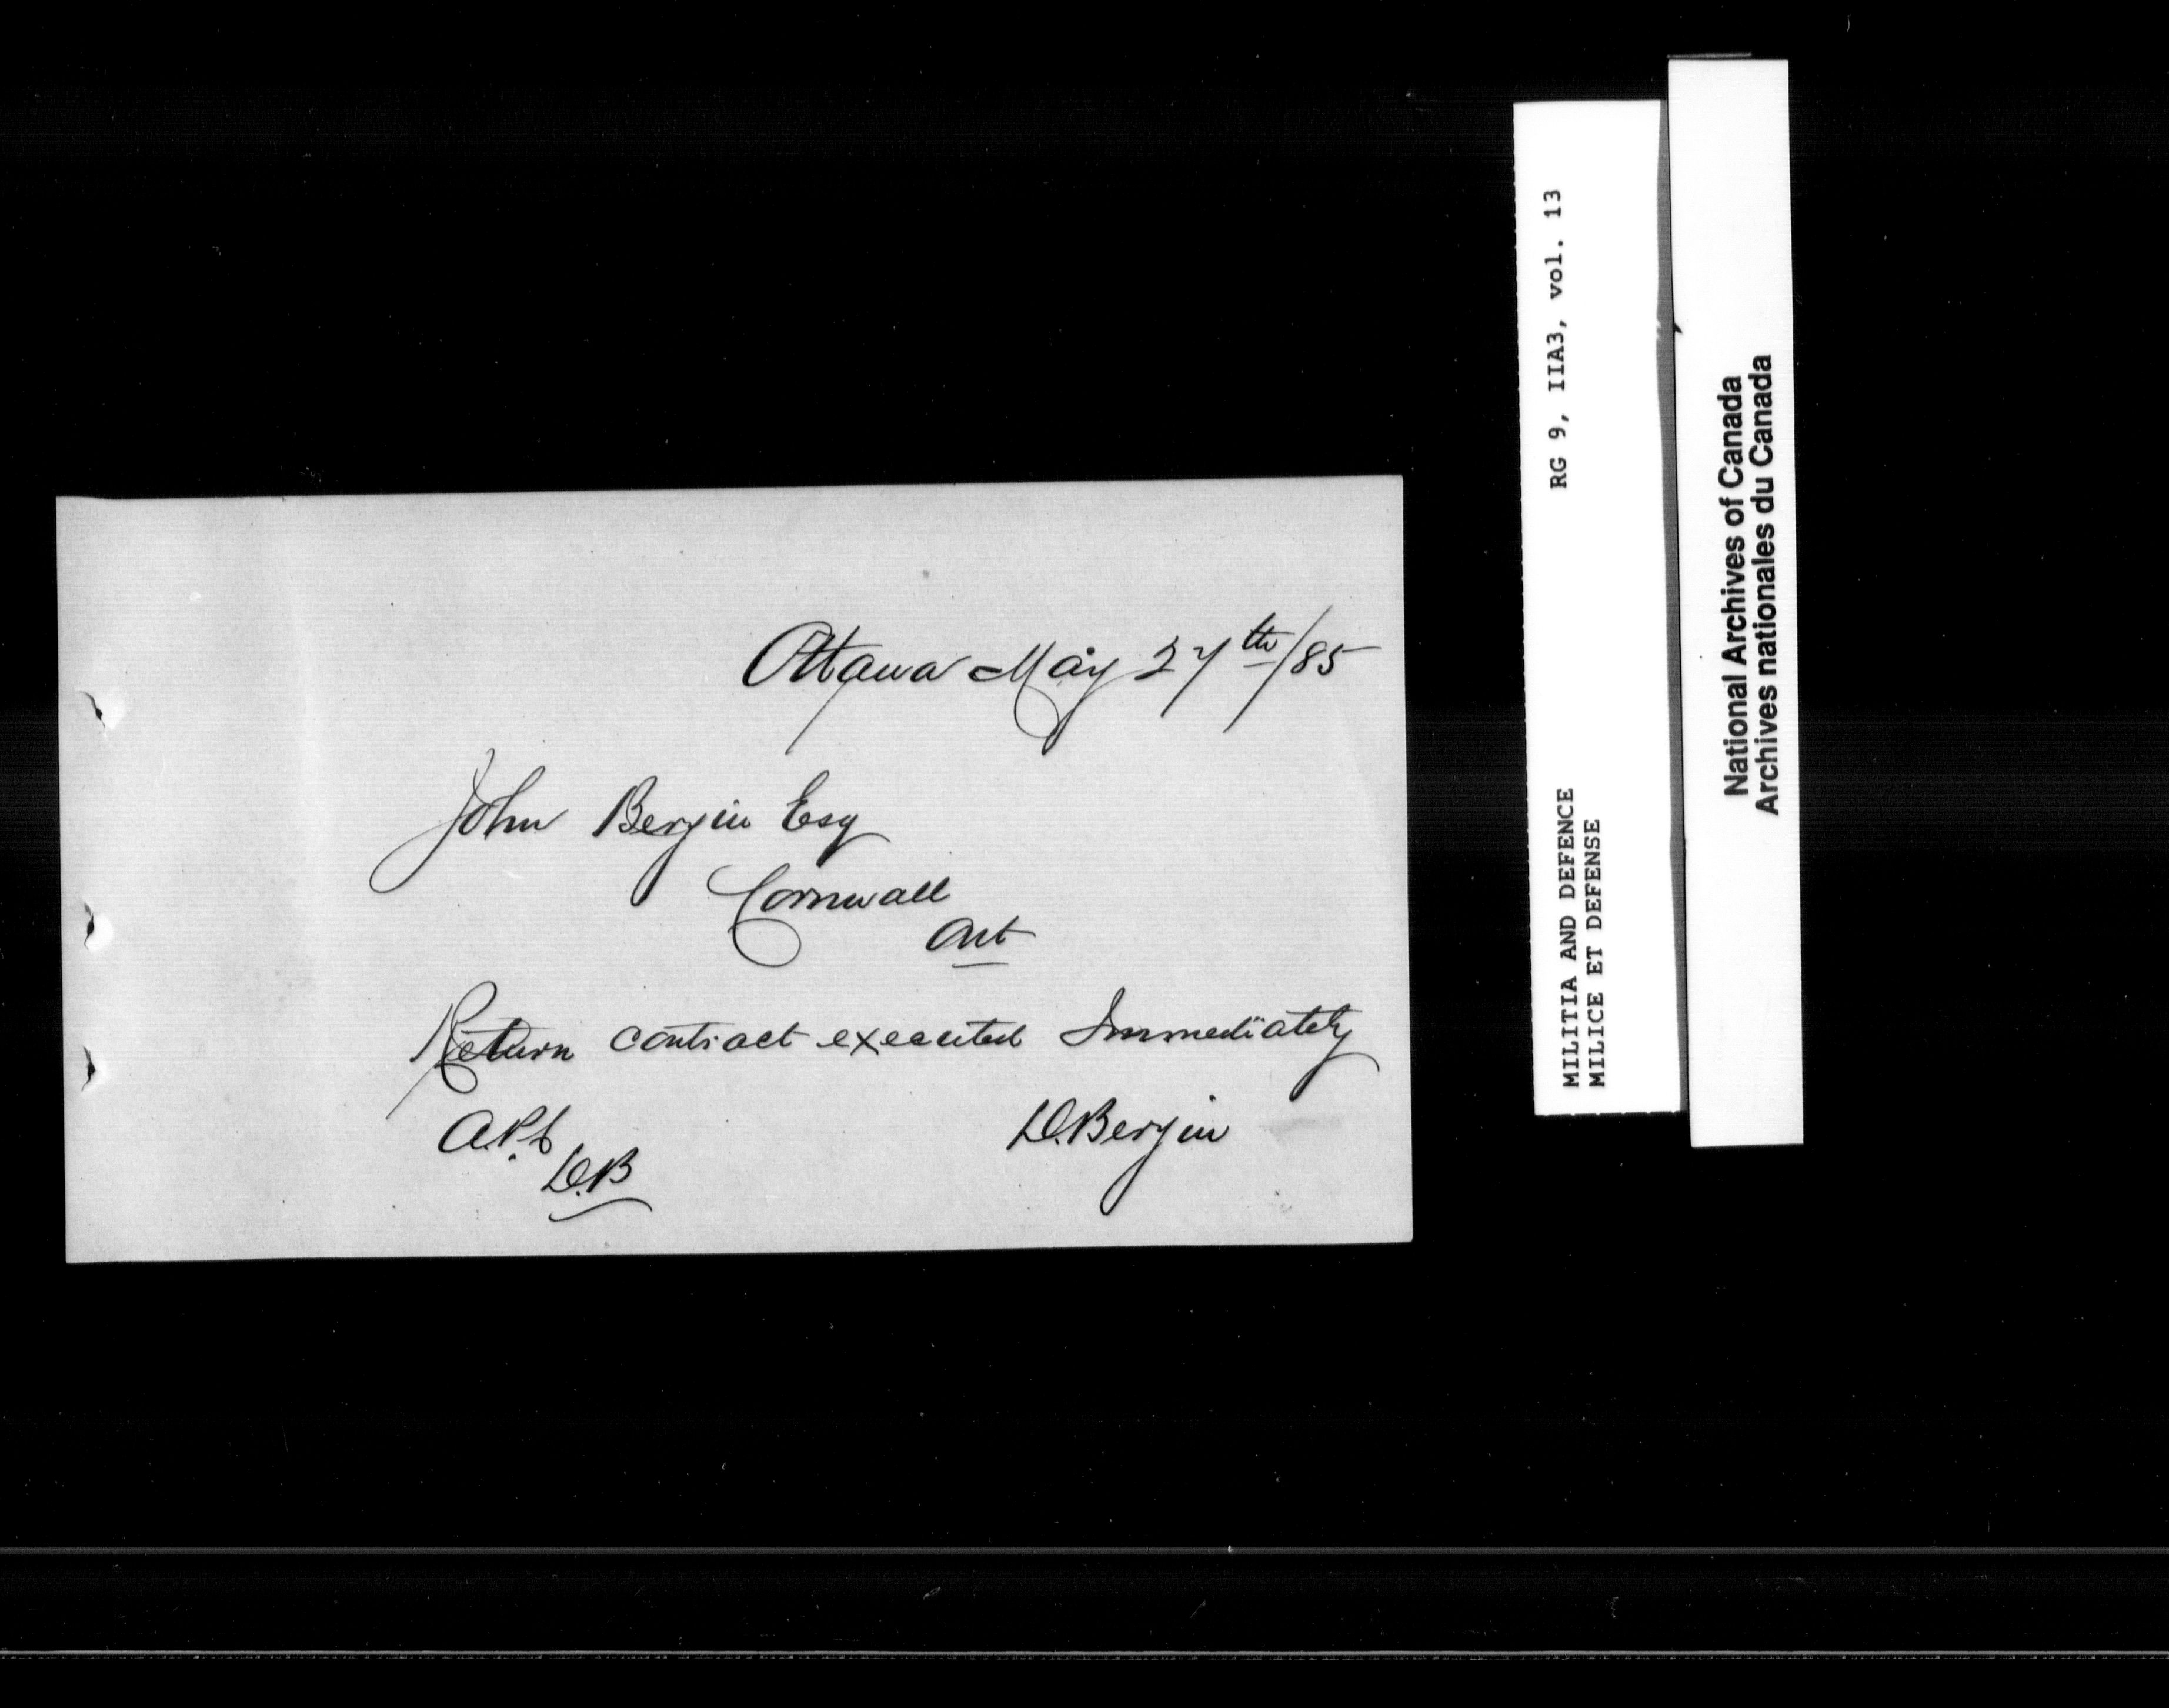 Ottawa May 27th/85
John Bergin Esq
Cornwall
Ont
Return contract executed Immediately
D.Bergin
D.B
RG 9, IIA3, vol. 13
MILITIA AND DEFENCE
MILICE ET DEFENSE
National Archives of Canada
Archives nationales du Canada